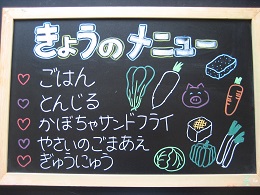 きょうのメニュー
ごはん
とんじる
かぼちゃサンドフライ
やさいのごまあえ
ぎゅうにゅう